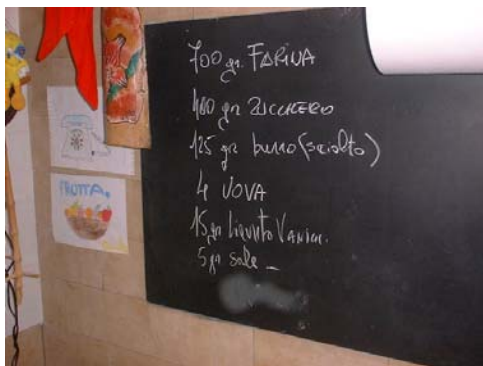 700 gr. FARINA
400 gr ZUCCHERO
125 gr burro (sciolto)
4 UOVA
15 gr lievito VANIGL.
5 gr sale
FRUTTA